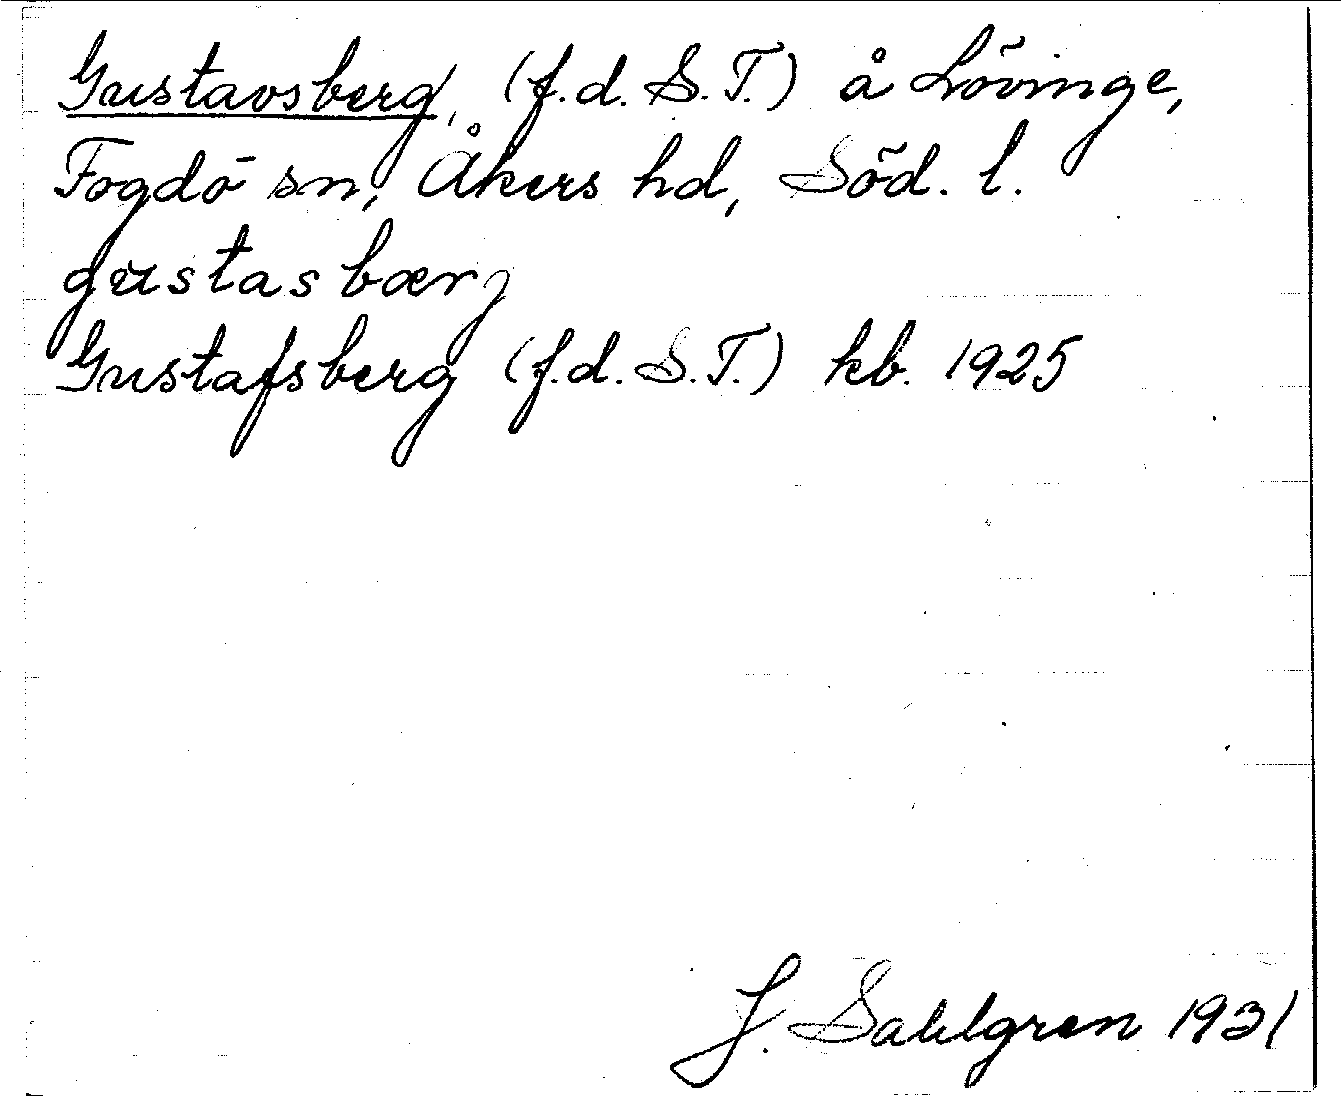 Gustavsberg, (f.d. S.T.) å Lövinge,
Fogdö sn, Åkers hd, Söd. l.
gustasbærj
Gustafsberg (f.d. S.T.) kb. 1925
J. Sahlgren 1931